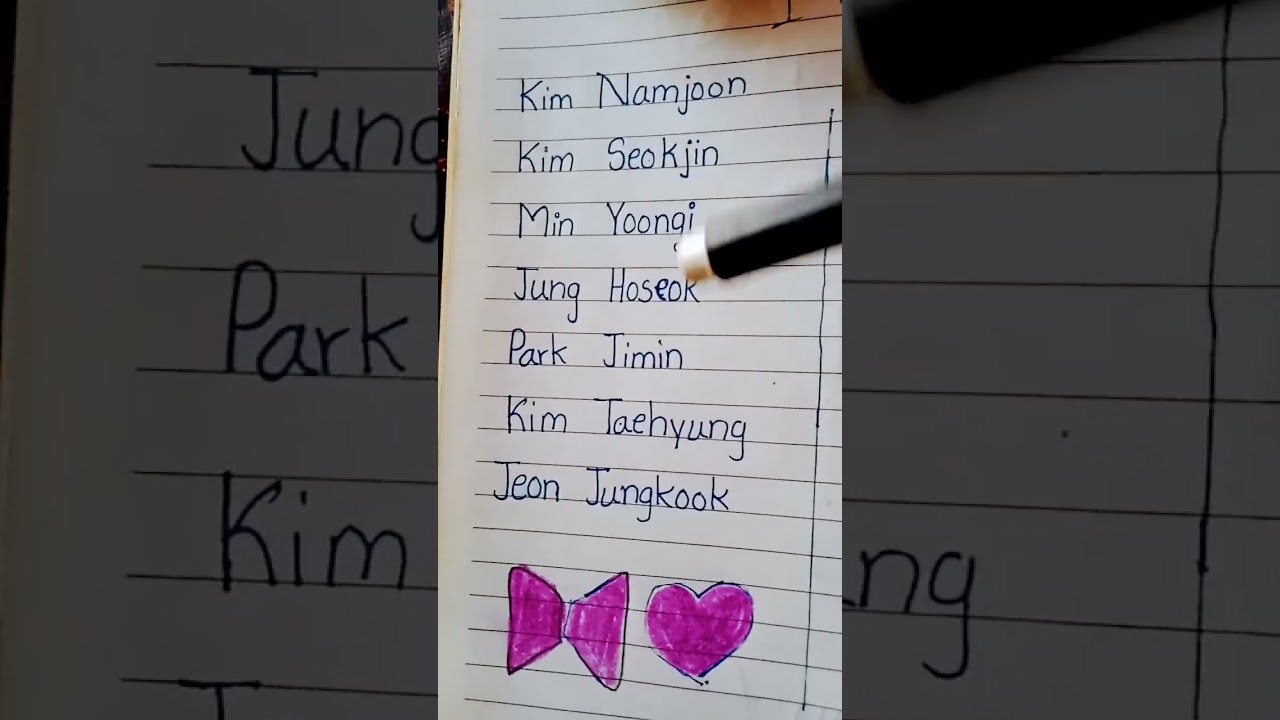 Kim Namjoon
Kim Seokjin
Min Yoongi
Jung Hoseok
Park Jimin
Kim Taehyung
Jeon Jungkook